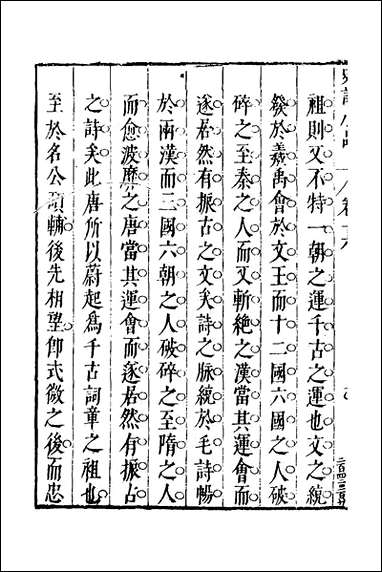 祖則又不特一朝之運千古之運也文之統
發於羲禹會於文王而十二國六國之人破
碎之至秦之人而又斬絶之漢當其運會而
遂居然有振古之文矣詩之脈統於毛詩暢
於兩漢而三國六朝之人破碎之至隋之人
而愈波靡之唐當其運會而遂居然有振古
之詩矣此唐所以蔚起爲千古詞章之祖也
至於名公碩輔後先相望卽式微之後而忠